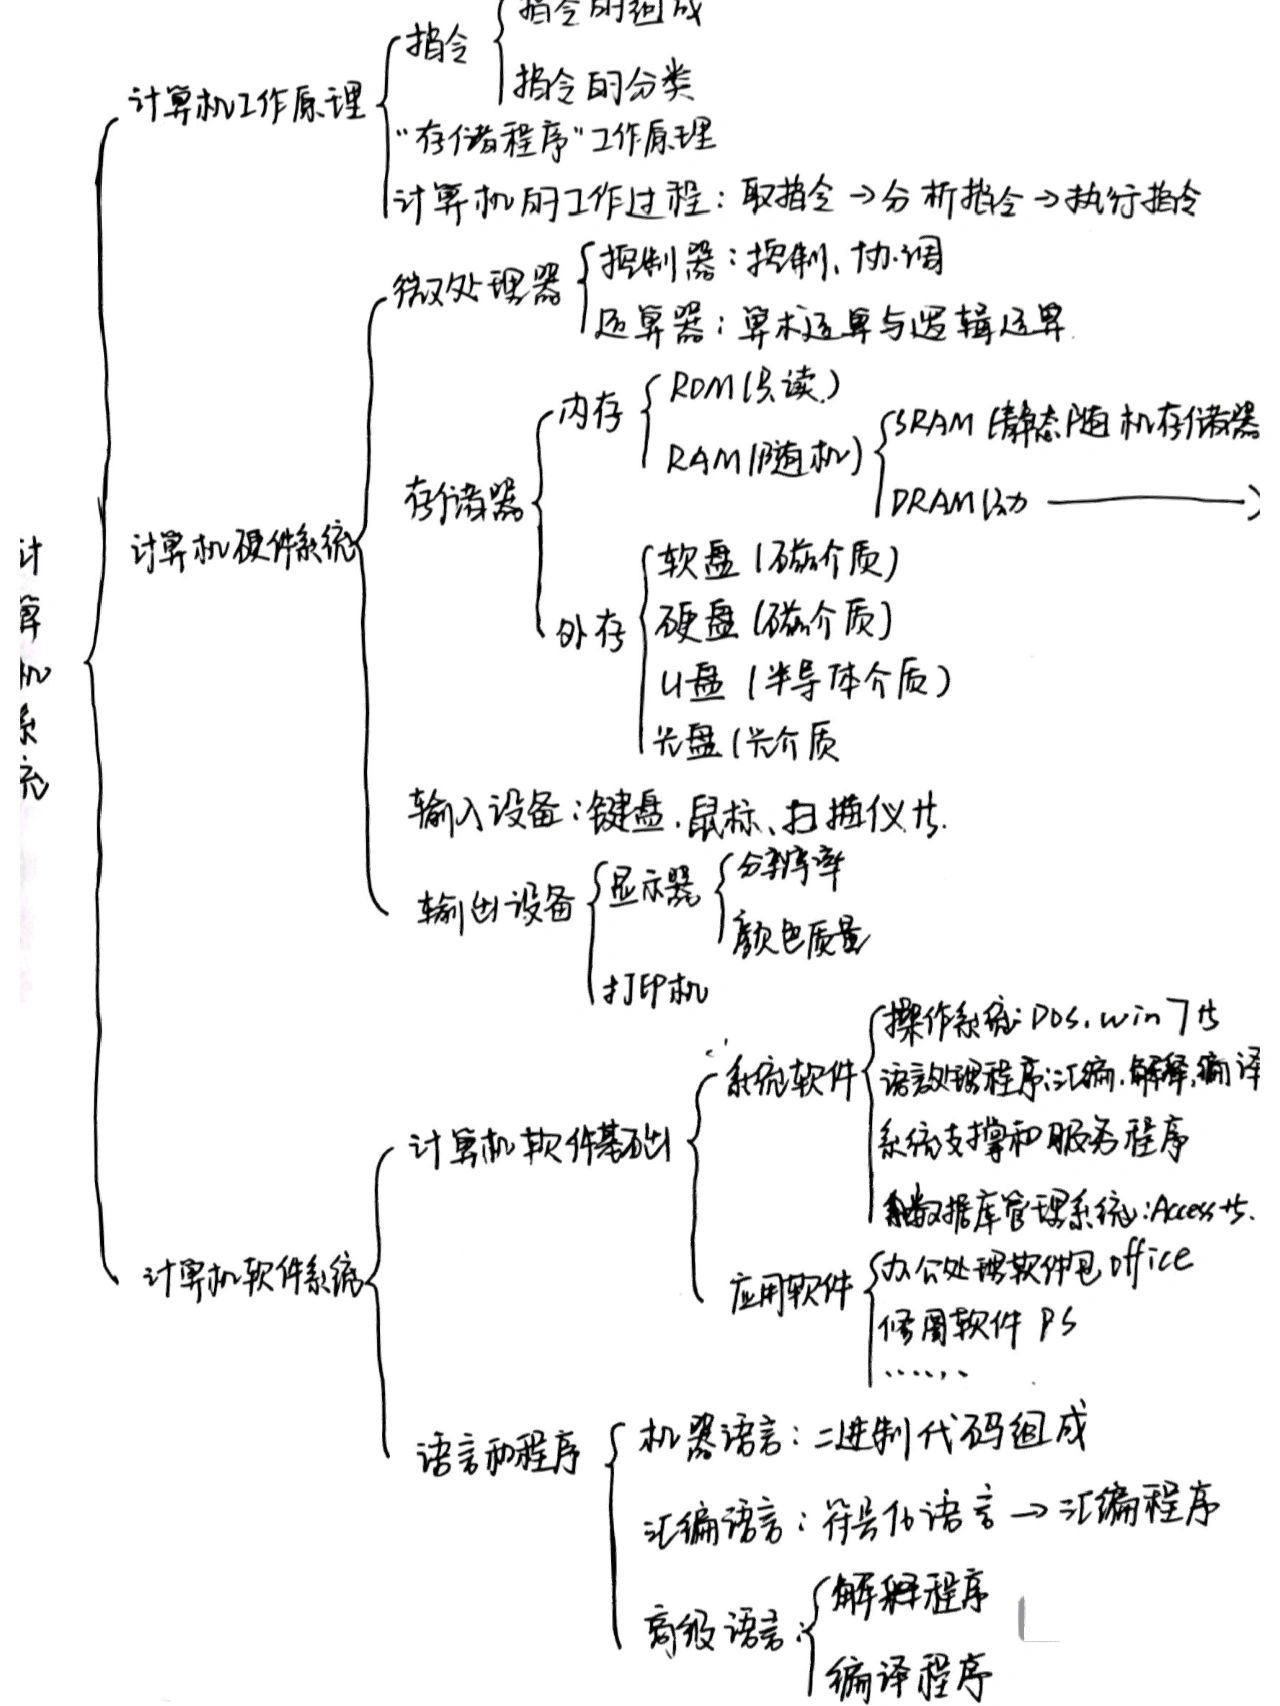 指令的组成
指令
指令的分类
计算机工作原理
"存储程序"工作原理
计算机的工作过程：取指令→分析指令→执行指令
微处理器
控制器：控制、协调
运算器：算术运算与逻辑运算.
内存
ROM(只读)
RAM(随机)
SRAM(静态随机存储器
DRAM(动
存储器
计算机硬件系统
计算机系统
外存
软盘(磁介质)
硬盘(磁介质)
U盘(半导体介质)
光盘(光介质
输入设备：键盘.鼠标、扫描仪等.
输出设备
显示器
分辨率
颜色质量
打印机
系统软件
操作系统:DOS.win7等
语言处理程序:汇编.解释.编译
系统支撑和服务程序
数据库管理系统:Access等.
计算机软件基础
应用软件
办公处理软件包office
修图软件PS
......
计算机软件系统
语言和程序
机器语言：二进制代码组成
汇编语言：符号化语言→汇编程序
高级语言：
解释程序
编译程序